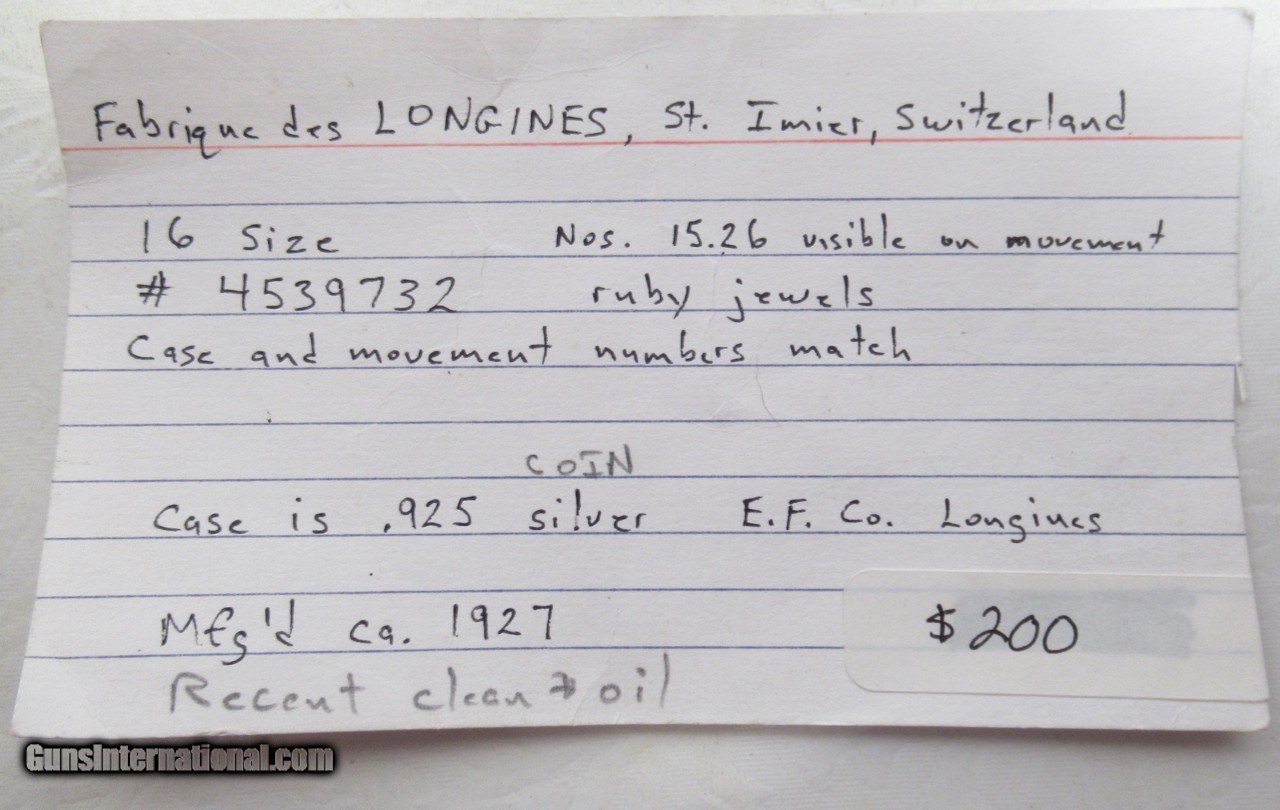 Fabrique des LONGINES, St. Imier, Switzerland
16 Size Nos. 15.26 visible on movement
# 4539732 ruby jewels
Case and movement numbers match
COIN
Case is .925 silver E.F. Co. Longines
Mfg'd ca. 1927 $200
Recent clean & oil
GunsInternational.com